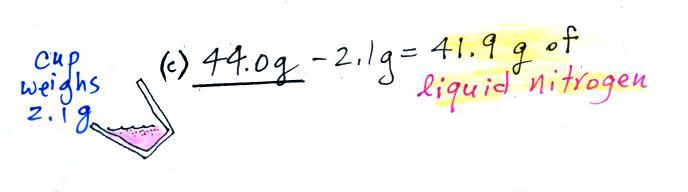 cup
weighs
2.1g
(c) 44.0g - 2.1g = 41.9 g of
liquid nitrogen